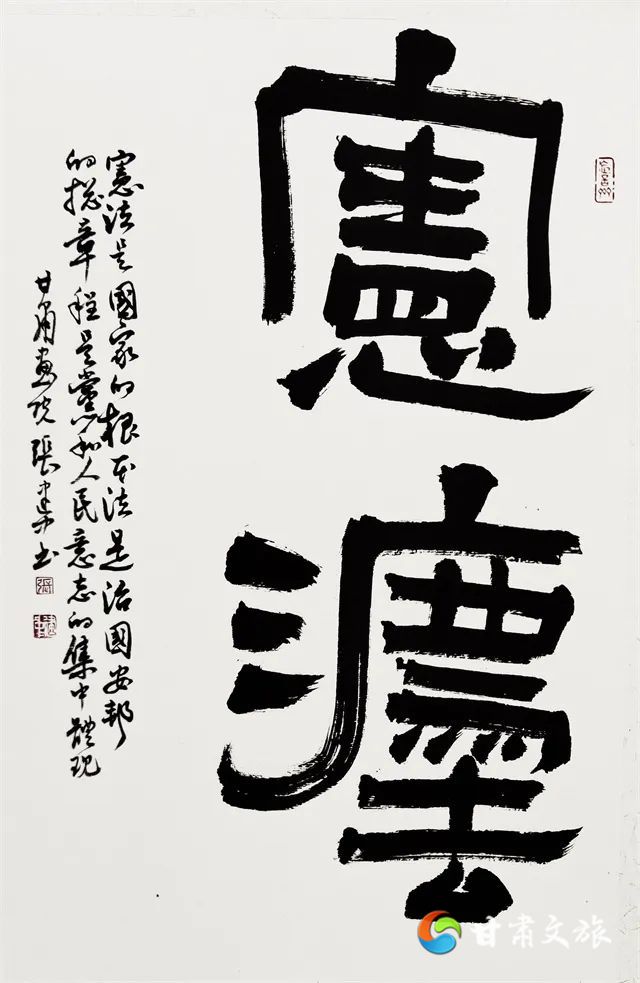 憲灋
憲法是國家的根本法是治國安邦
的摠章程是黨和人民意志的集中體現
甘肅畫院張书
甘肃文旅